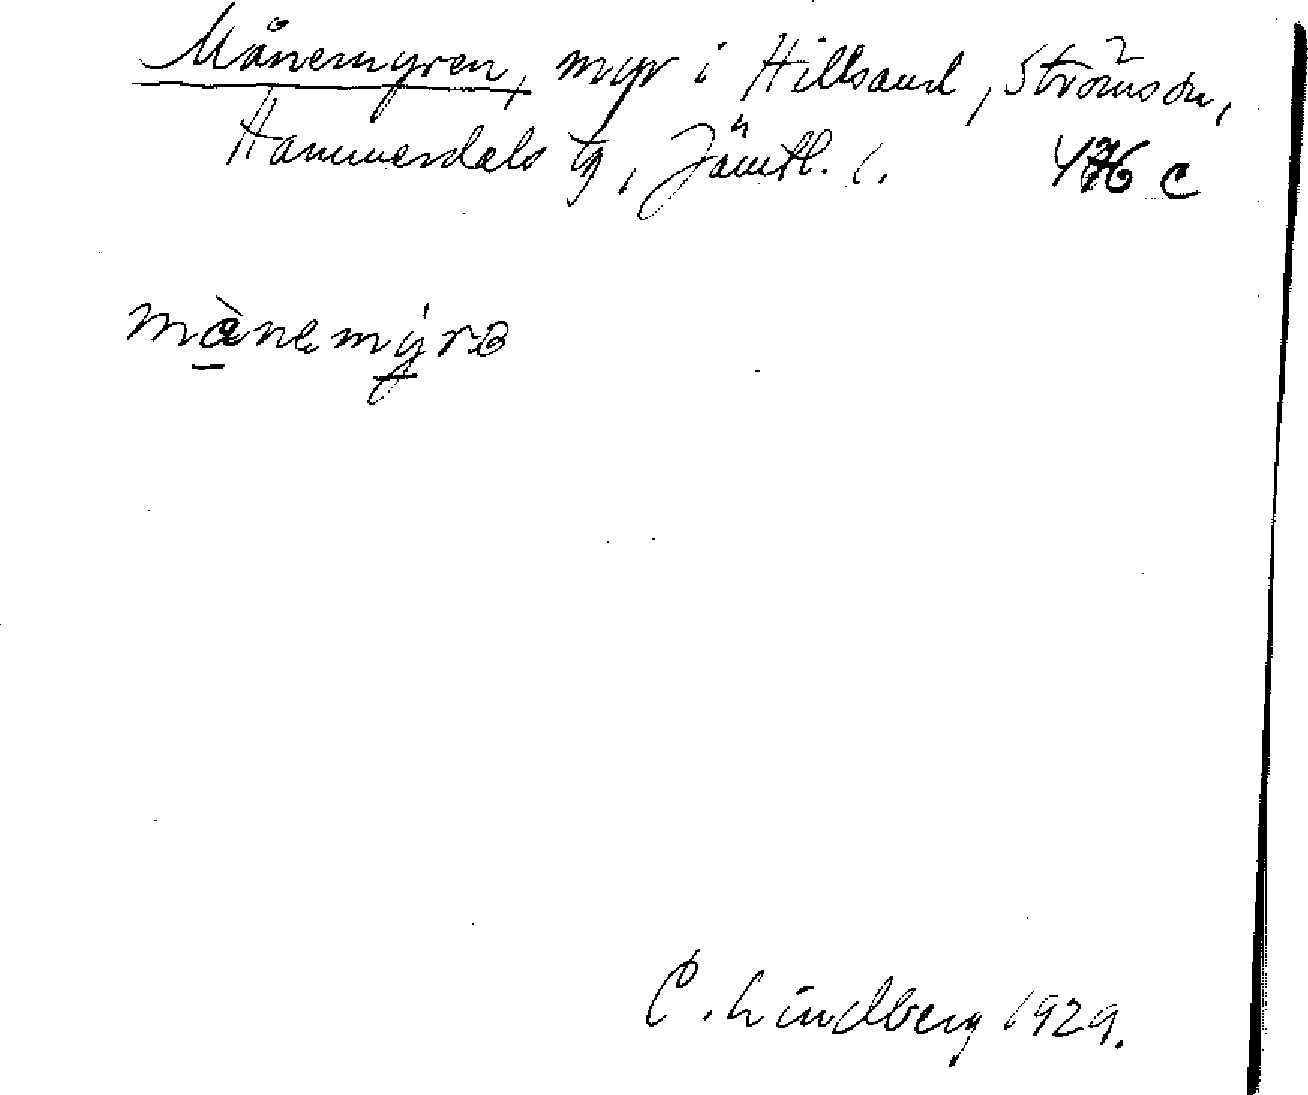 Månemyren, myr i Hillsand, Ströms sn,
Hammerdals tg, Jämtl. l. 476 c
mànemýra
C. Lindberg 1929.